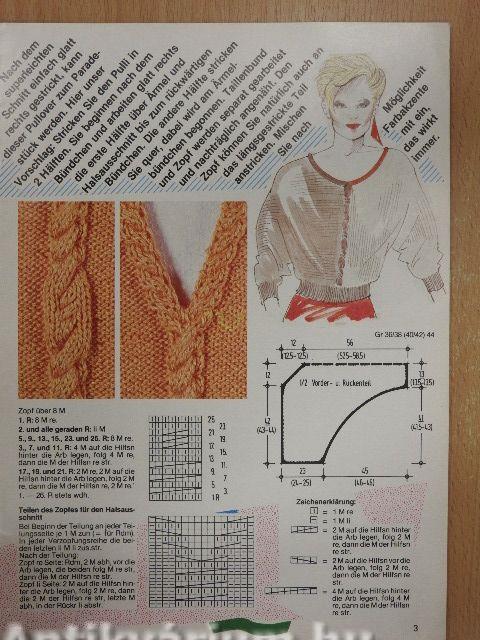 Nach dem
superleichten
Schnitt einfach glatt
rechts gestrickt, kann
dieser Pullover zum Parade-
stück werden. Hier unser
Vorschlag: Stricken Sie den Pulli in
2 Hälften. Sie beginnen nach dem
Bündchen und arbeiten glatt rechts
die erste Hälfte über Ärmel und
Halsausschnitt bis zum rückwärtigen
Bündchen. Die andere Hälfte stricken
Sie quer, dabei wird am Ärmel-
bündchen begonnen. Taillenbund
und Zopf werden separat gearbeitet
und nachträglich angenäht. Den
Zopf können Sie natürlich auch an
das längsgestrickte Teil
anstricken. Mischen
Sie nach
Möglichkeit
Farbakzente
mit ein,
das wirkt
immer.
Gr 36/38 (40/42) 44
12
56
(12,5-12,5)
(57,5-58,5)
12
13
(13,5-13,5)
1/2 Vorder- u. Rückenteil
42
(43-44)
41
(41,5-43)
23
45
(24-25)
(46-46)
Zopf über 8 M
1. R: 8 M re.
2. und alle geraden R: li M
5., 9., 13., 15., 23. und 25. R: 8 M re.
3., 7. und 11. R: 4 M auf die Hilfsn
hinter die Arb legen, folg 4 M re,
dann die M der Hilfsn re str.
17., 19. und 21. R: 2 M re, 2 M auf die
Hilfsn hinter die Arb legen, folg 2 M re,
dann die 2 M der Hilfsn re, 2 M re.
1. — 26. R stets wdh.
25
23.
21
19.
17.
15.
13.
11.
9.
7.
5.
3.
1 R
Teilen des Zopfes für den Halsaus-
schnitt
Bei Beginn der Teilung an jeder Tei-
lungsseite je 1 M zun (= für Rdm).
In jeder Verzopfungsreihe die bei-
den letzten li M li zus.str.
Nach der Teilung:
Zopf re Seite: Rdm, 2 M abh, vor die
Arb legen, die beiden folg M re str,
dann die M der Hilfsn re str.
Zopf li Seite: 2 M auf die Hilfsn hin-
ter die Arb legen, folg 2 M re, dann
die 2 M der Hilfsn re str, letzte M
abh, in der Rückr li abstr.
Zeichenerklärung:
= 1 M re
= 1 M li
= 2 M auf die Hilfsn hinter
die Arb legen, folg 2 M
re, dann die M der Hilfsn
re str.
= 2 M auf die Hilfsn vor die
Arb legen, folg 2 M re,
dann die M der Hilfsn re
str.
= 4 M auf die Hilfsn hinter
die Arb legen, folg 4 M
re, dann die M der Hilfsn
re str.
3